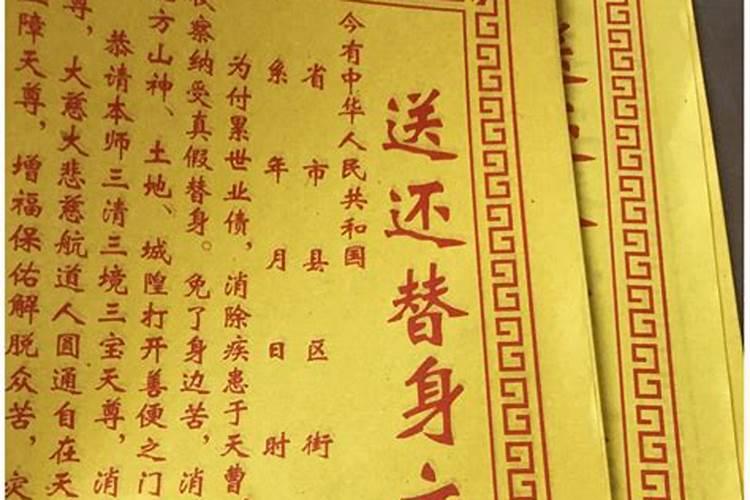 送还替身
今有中华人民共和国
省市县区街
系年月日时
为付累世业债，消除疾患于天曹，
察纳受真假替身。免了身边苦，消
方山神、土地、城隍打开善便之门
恭请本师三清三境三宝天尊，消
尊，大慈大悲慈航道人圆通自在天
障天尊，增福保佑解脱众苦，灾